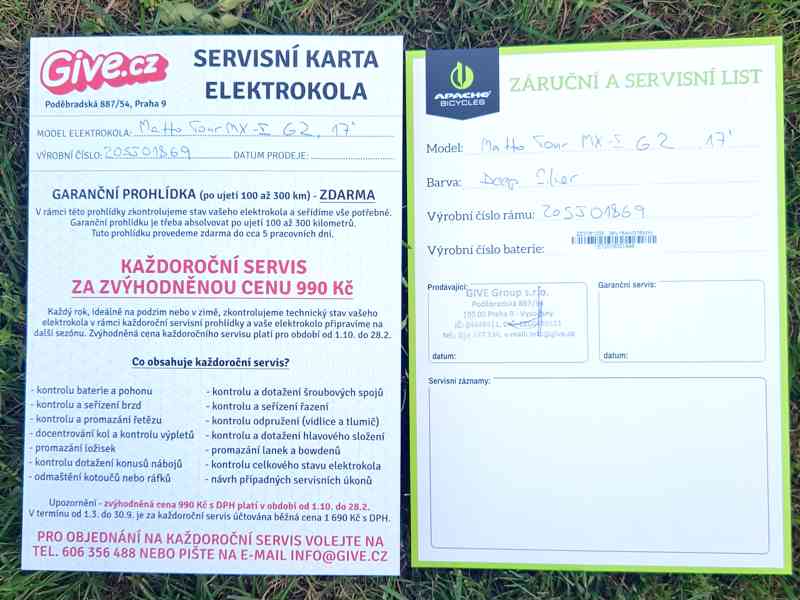 Give.cz
Poděbradská 887/54, Praha 9
SERVISNÍ KARTA
ELEKTROKOLA
MODEL ELEKTROKOLA: Matto Tour MX-I G2, 17"
VÝROBNÍ ČÍSLO: 205J01869 DATUM PRODEJE:
GARANČNÍ PROHLÍDKA (po ujetí 100 až 300 km) - ZDARMA
V rámci této prohlídky zkontrolujeme stav vašeho elektrokola a seřídíme vše potřebné.
Garanční prohlídku je třeba absolvovat po ujetí 100 až 300 kilometrů.
Tuto prohlídku provedeme zdarma do cca 5 pracovních dní.
KAŽDOROČNÍ SERVIS
ZA ZVÝHODNĚNOU CENU 990 Kč
Každý rok, ideálně na podzim nebo v zimě, zkontrolujeme technický stav vašeho
elektrokola v rámci každoroční servisní prohlídky a vaše elektrokolo připravíme na
další sezónu. Zvýhodněná cena každoročního servisu platí pro období od 1.10. do 28.2.
Co obsahuje každoroční servis?
- kontrolu baterie a pohonu
- kontrolu a seřízení brzd
- kontrolu a promazání řetězu
- docentrování kol a kontrolu výpletů
- promazání ložisek
- kontrolu dotažení konusů nábojů
- odmaštění kotoučů nebo ráfků
- kontrolu a dotažení šroubových spojů
- kontrolu a seřízení řazení
- kontrolu odpružení (vidlice a tlumič)
- kontrolu a dotažení hlavového složení
- promazání lanek a bowdenů
- kontrolu celkového stavu elektrokola
- návrh případných servisních úkonů
Upozornění - zvýhodněná cena 990 Kč s DPH platí v období od 1.10. do 28.2.
V termínu od 1.3. do 30.9. je za každoroční servis účtována běžná cena 1 690 Kč s DPH.
PRO OBJEDNÁNÍ NA KAŽDOROČNÍ SERVIS VOLEJTE NA
TEL. 606 356 488 NEBO PIŠTE NA E-MAIL INFO@GIVE.CZ
APACHE
BICYCLES
ZÁRUČNÍ A SERVISNÍ LIST
Model: Matto Tour MX-I G2 17"
Barva:
Výrobní číslo rámu: 205J01869
Výrobní číslo baterie:
Prodávající:
GIVE Group s.r.o.
Poděbradská 887/54
190 00 Praha 9 - Vysočany
datum:
Garanční servis:
datum:
Servisní záznamy: